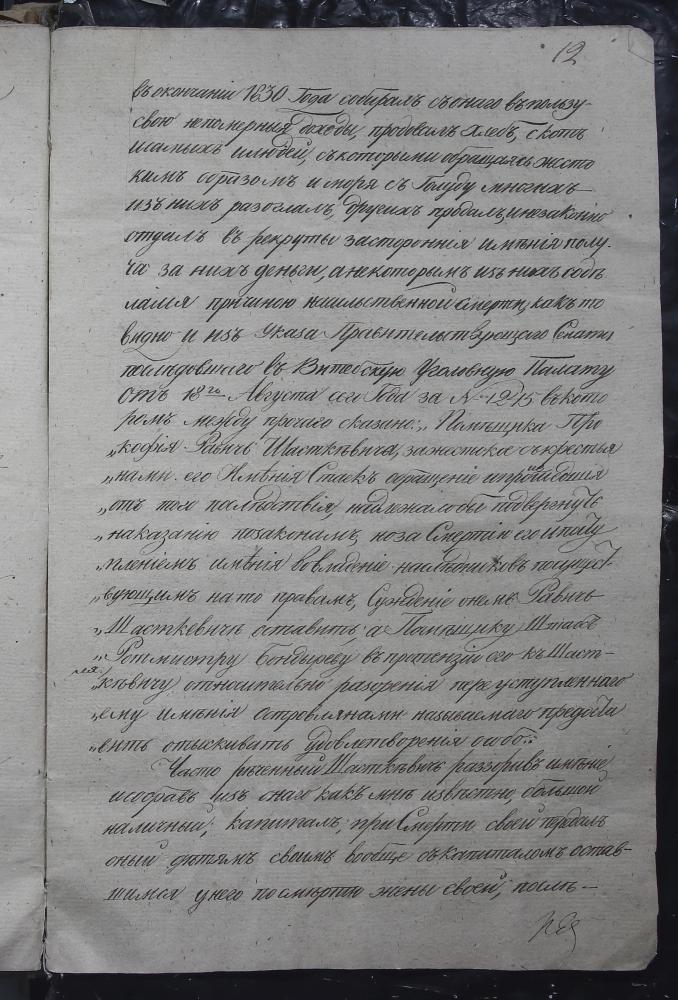 12
въ окончаніи 1830 Года собиралъ съ онаго въ пользу
свою непомерныя доходы, продовалъ хлебъ, скотъ
и самыхъ людей, съ которыми обращаясь жесто
кимъ образомъ и моря съ Голуду многихъ
изъ нихъ разогналъ, другихъ продалъ, и незаконно
отдалъ въ рекруты засторонния имѣнія полу-
ча за нихъ деньги, а некоторымъ изъ нихъ соде
лался причиною насильственной Смерти, какъ то
видно и изъ Указа Правительствующаго Сената
последовшаго въ Витебскую Уголовную Палату
отъ 18го Августа сего Года за № 1215 въ кото
ромъ между прочаго сказано: „Помѣщика Про
„кофія Равичъ Шасткевича, за жестокое съ крестья
„нами его Имѣнія Стаекъ обращеніе и происшедшия
„отъ того последствія, надлежало бы подвергнуть
„наказанію по законамъ, но за Смертію его и посту
„пленіемъ имѣнія во владеніе наследниковъ по сущест
„вующимъ на то правамъ, Сужденіе онемъ Равичъ
„Шасткевичи оставить, а Помѣщику Штабъ
„Ротмистру Бондыреву въ протензіи его къ Шаст-
„кѣвичу, относительно разоренія переуступленнаго
„ему имѣнія островлянами называемаго предоста
„вить отыскивать удовлетворенія особо.“
Часто рѣченный Шасткѣвичъ раззоривъ имѣніе
и собравъ изъ онаго какъ мнѣ извѣстно, большой
наличный, капиталъ, при Смерти своей передалъ
оный дѣтямъ своимъ вообще съ капиталомъ остав-
шимся у него по смѣртію жены своей, послѣ-